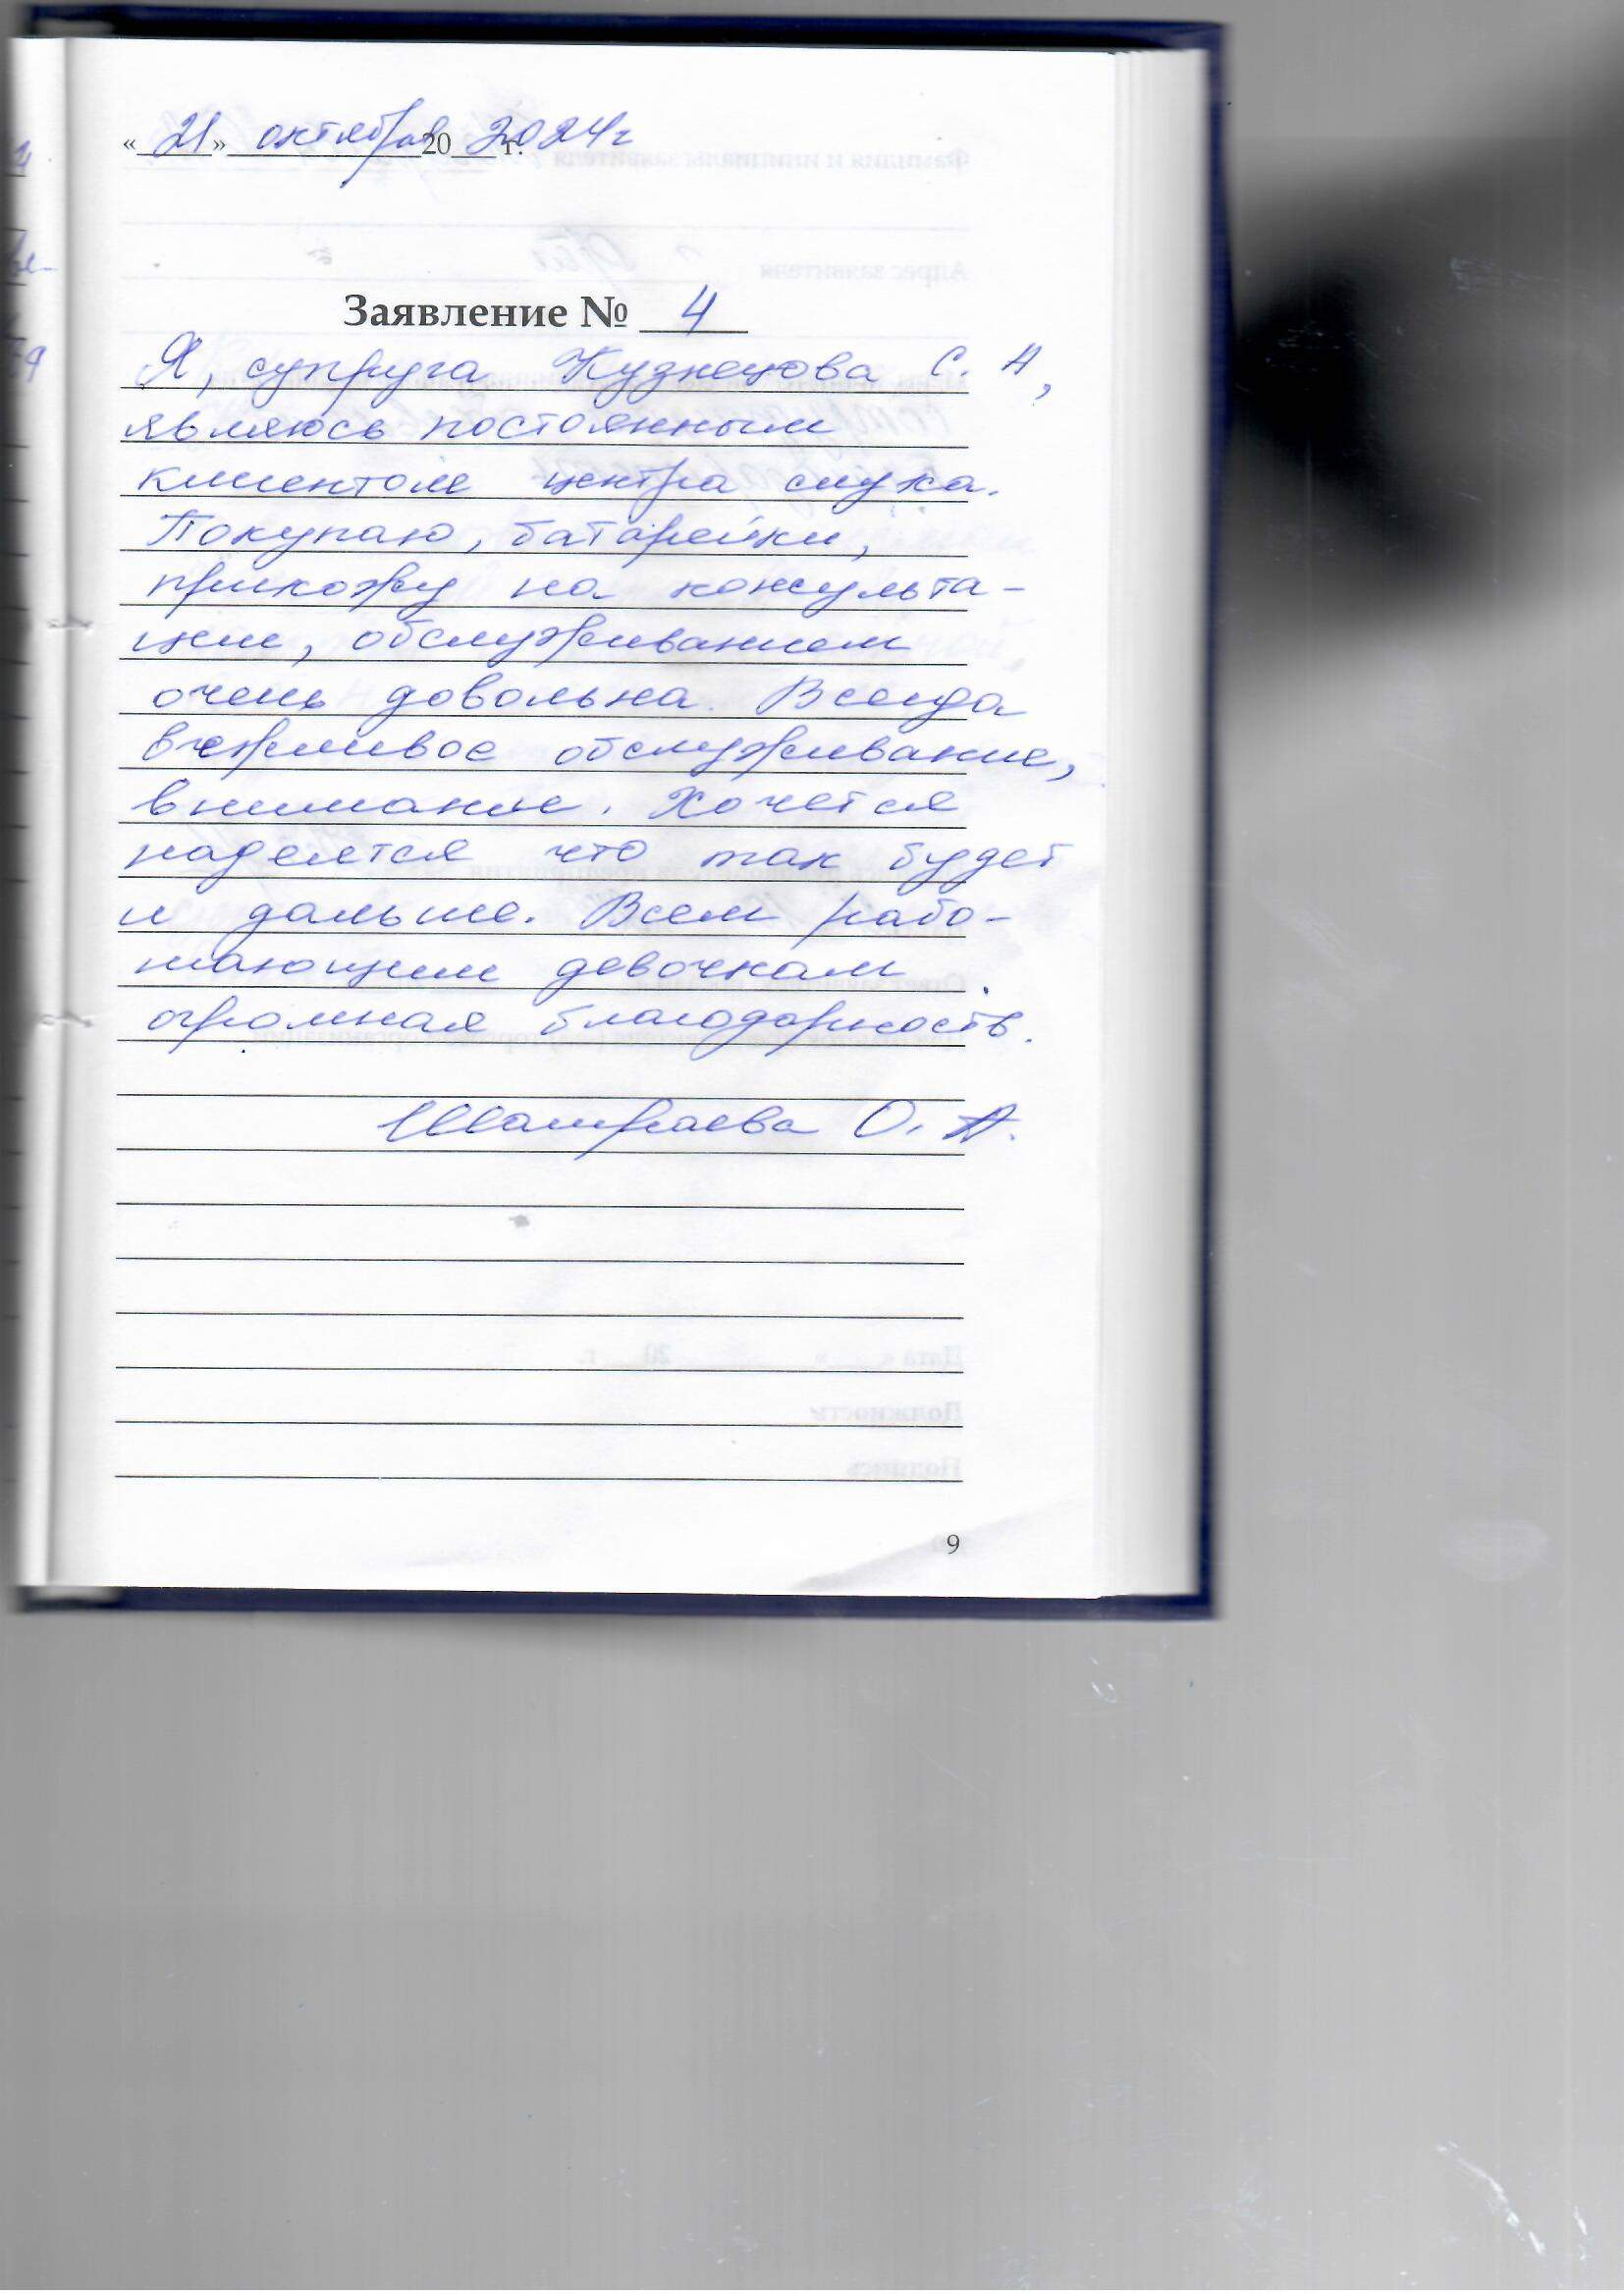 « 21 » октября 20 2024г г.
Заявление № 4
Я, супруга Кузнецова С. А,
являюсь постоянным
клиентом центра слуха.
Покупаю, батарейки,
прихожу на консульта-
ции, обслуживанием
очень довольна. Всегда
вежливое обслуживание,
внимание. Хочется
надеятся что так будет
и дальше. Всем рабо-
тающим девочкам
огромная благодарность.
О. А.
9